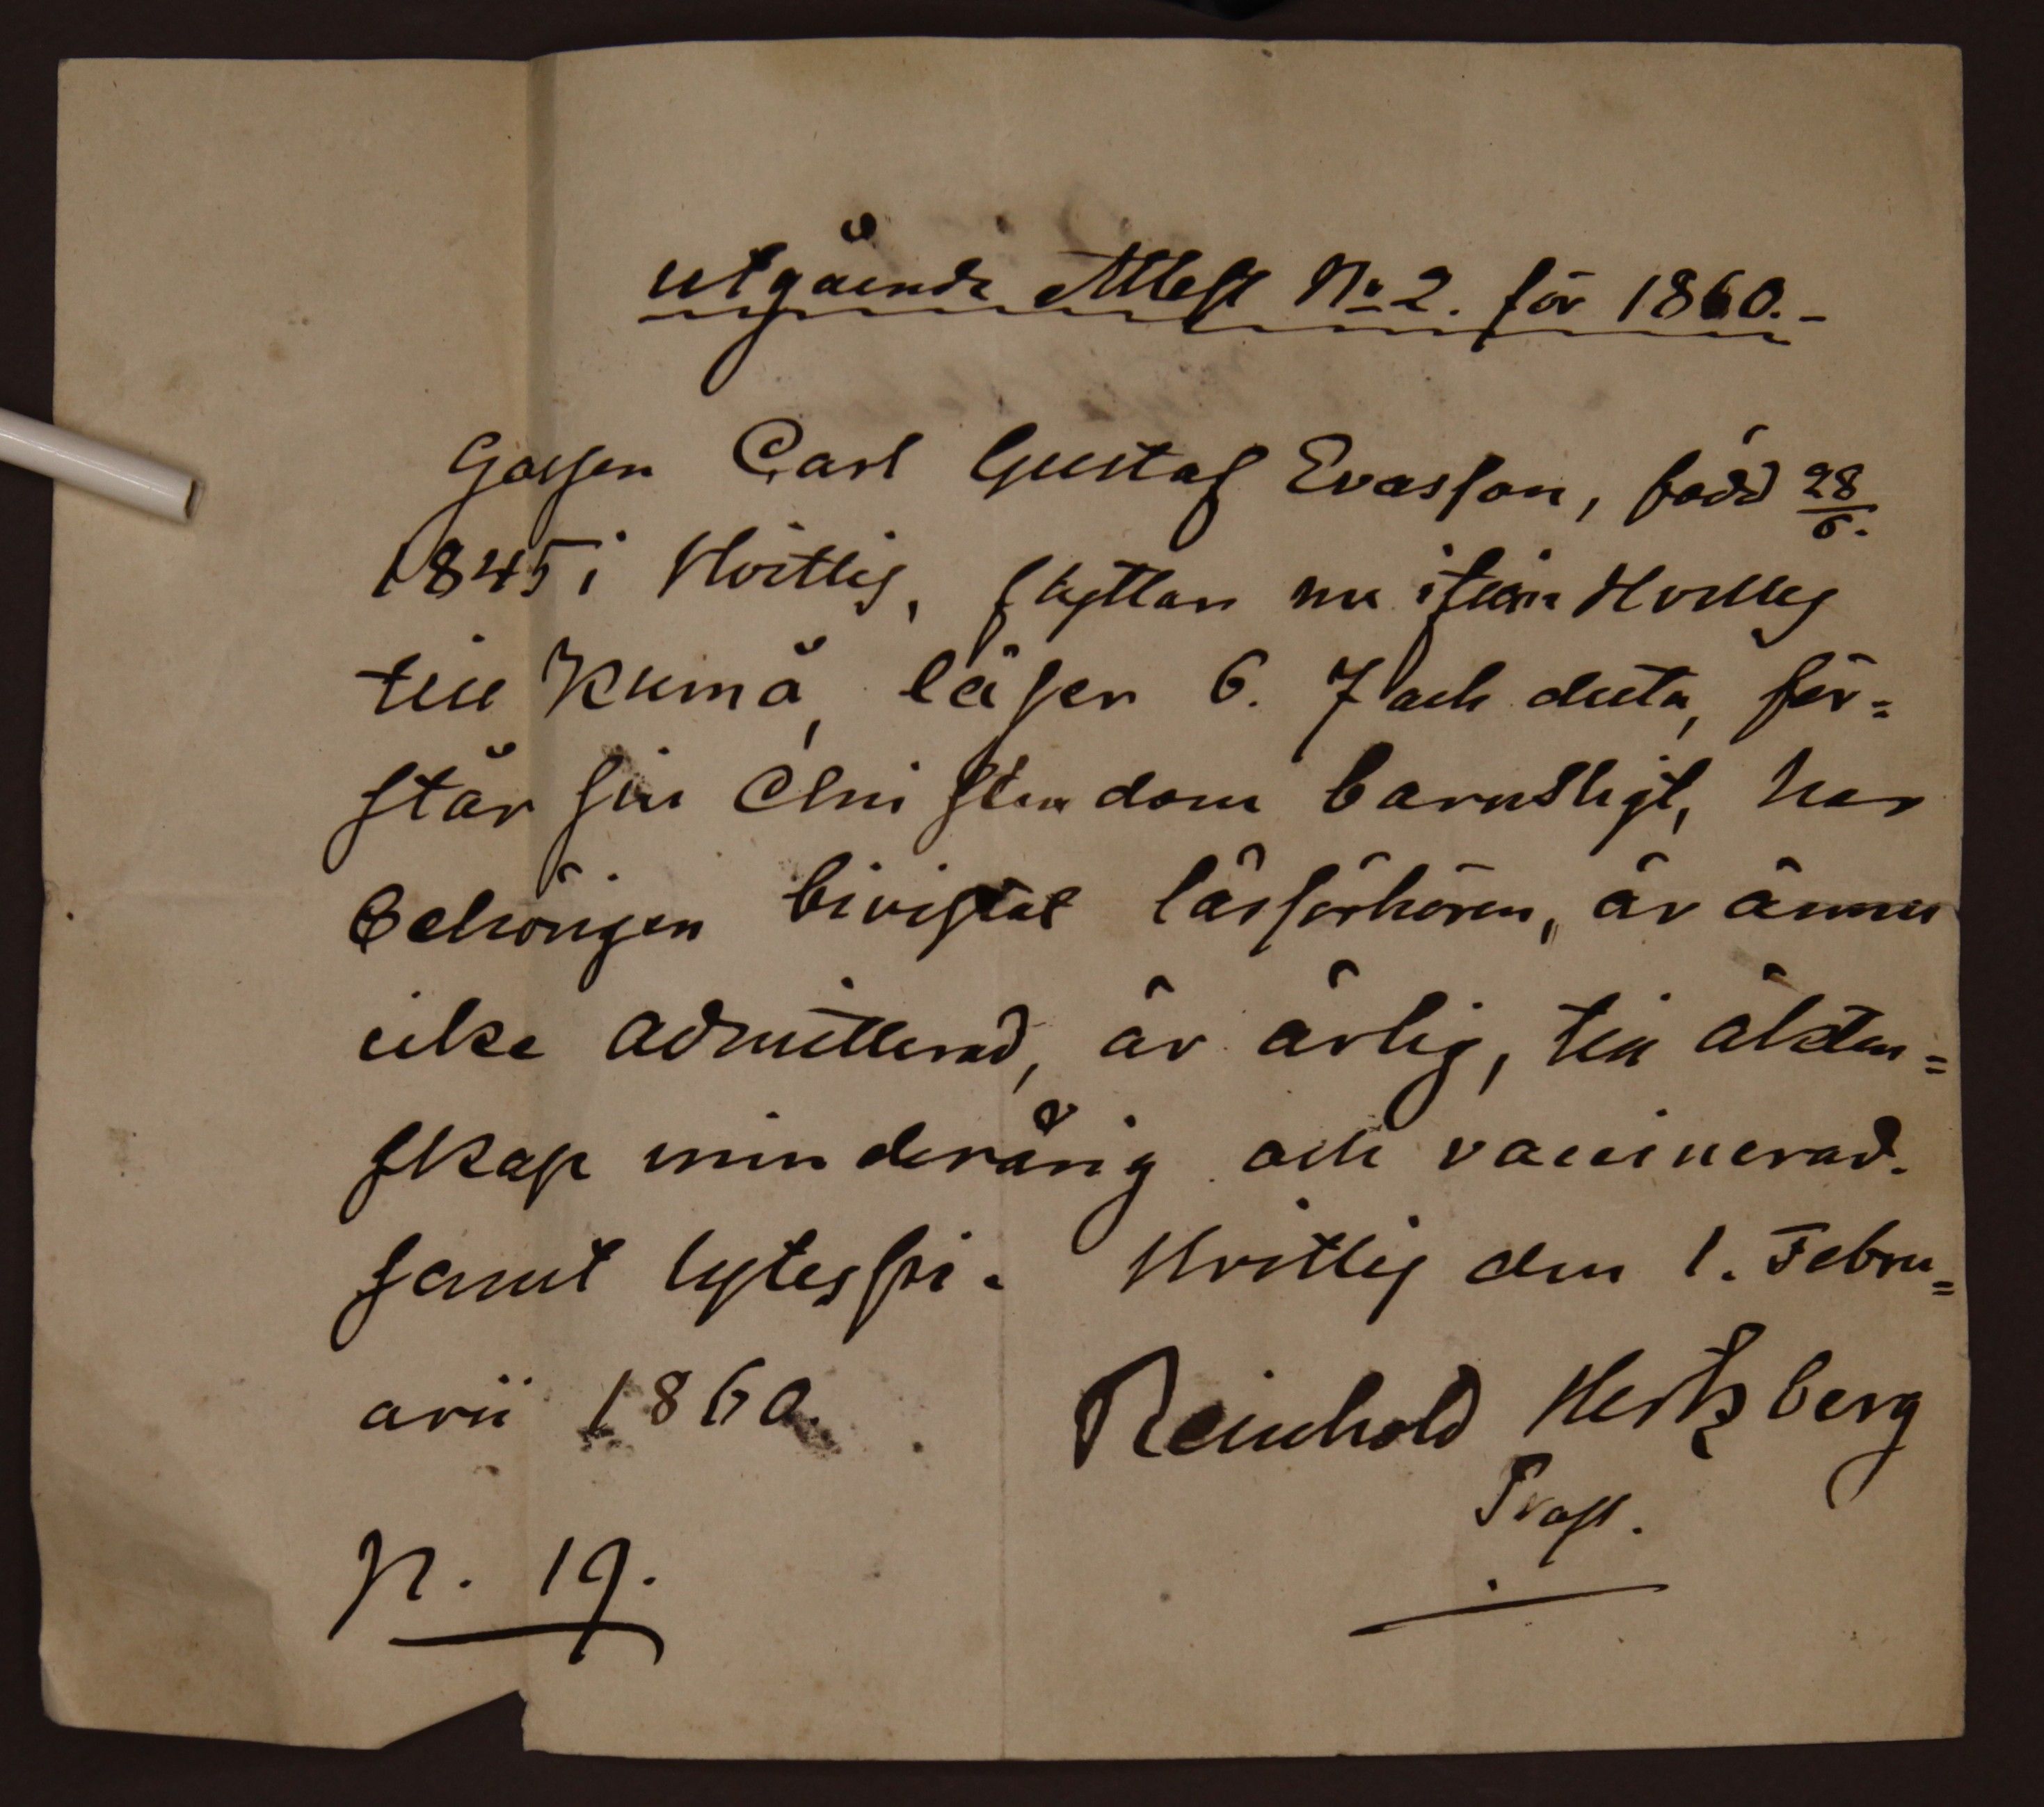 utgående Attest No 2. för 1860.-
Gossen Carl Gustaf Evasson, född 28/6.
1845 i Hvittis, flyttar nu ifrån Hvittis
till Kumå, läser 6. 7 och duta, för=
står sin Christendom barnsligt, har
behörigen bivistat läsförhören, är ännu
icke admitterad, är ärlig, till äkten=
skap minderårig och vaccinerad.
samt lytesfri. Hvittis den 1. Febru=
arii 1860. Reinhold Hertzberg
Prost.
p. 19.